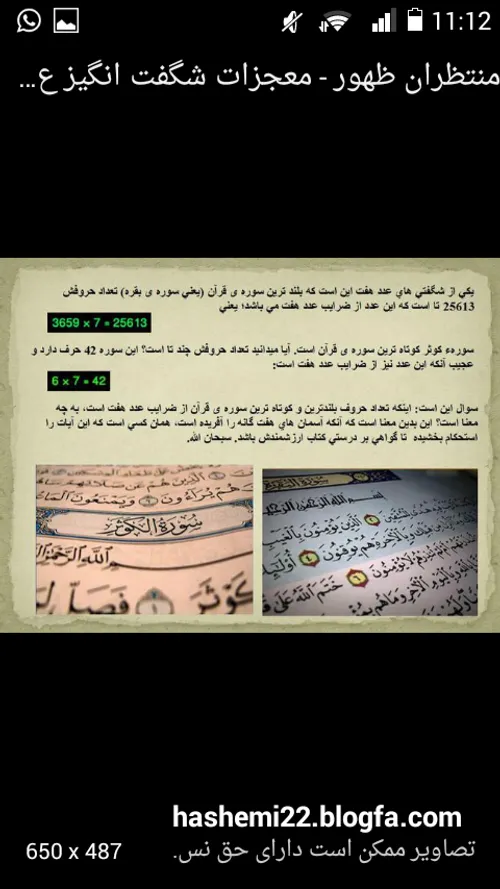 11:12
منتظران ظهور - معجزات شگفت انگیز ع...
یکي از شگفتي هاي عدد هفت این است که بلند ترین سوره ي قرآن (یعني سوره ي بقره) تعداد حروفش
25613 تا است که این عدد از ضرایب عدد هفت مي باشد؛ یعني
3659 x 7 = 25613
سورهء کوثر کوتاه ترین سوره ي قرآن است. آیا میدانید تعداد حروفش چند تا است؟ این سوره 42 حرف دارد و
عجیب آنکه این عدد نیز از ضرایب عدد هفت است:
6 x 7 = 42
سوال این است: اینکه تعداد حروف بلندترین و کوتاه ترین سوره ي قرآن از ضرایب عدد هفت است، به چه
معنا است؟ این بدین معنا است که آنکه آسمان هاي هفت گانه را آفریده است، همان کسي است که این آیات را
استحکام بخشیده تا گواهي بر درستي کتاب ارزشمندش باشد. سبحان الله.
هُمْ يُرَاءُونَ وَيَمْنَعُونَ
سُورَةُ الْكَوْثَرِ
فَصَلِّ
الَّذِينَ يُؤْمِنُونَ بِالْغَيْبِ
هُمْ يُوقِنُونَ أُولَٰئِكَ
خَتَمَ اللَّهُ عَلَىٰ
hashemi22.blogfa.com
650 x 487
تصاویر ممکن است دارای حق نس.